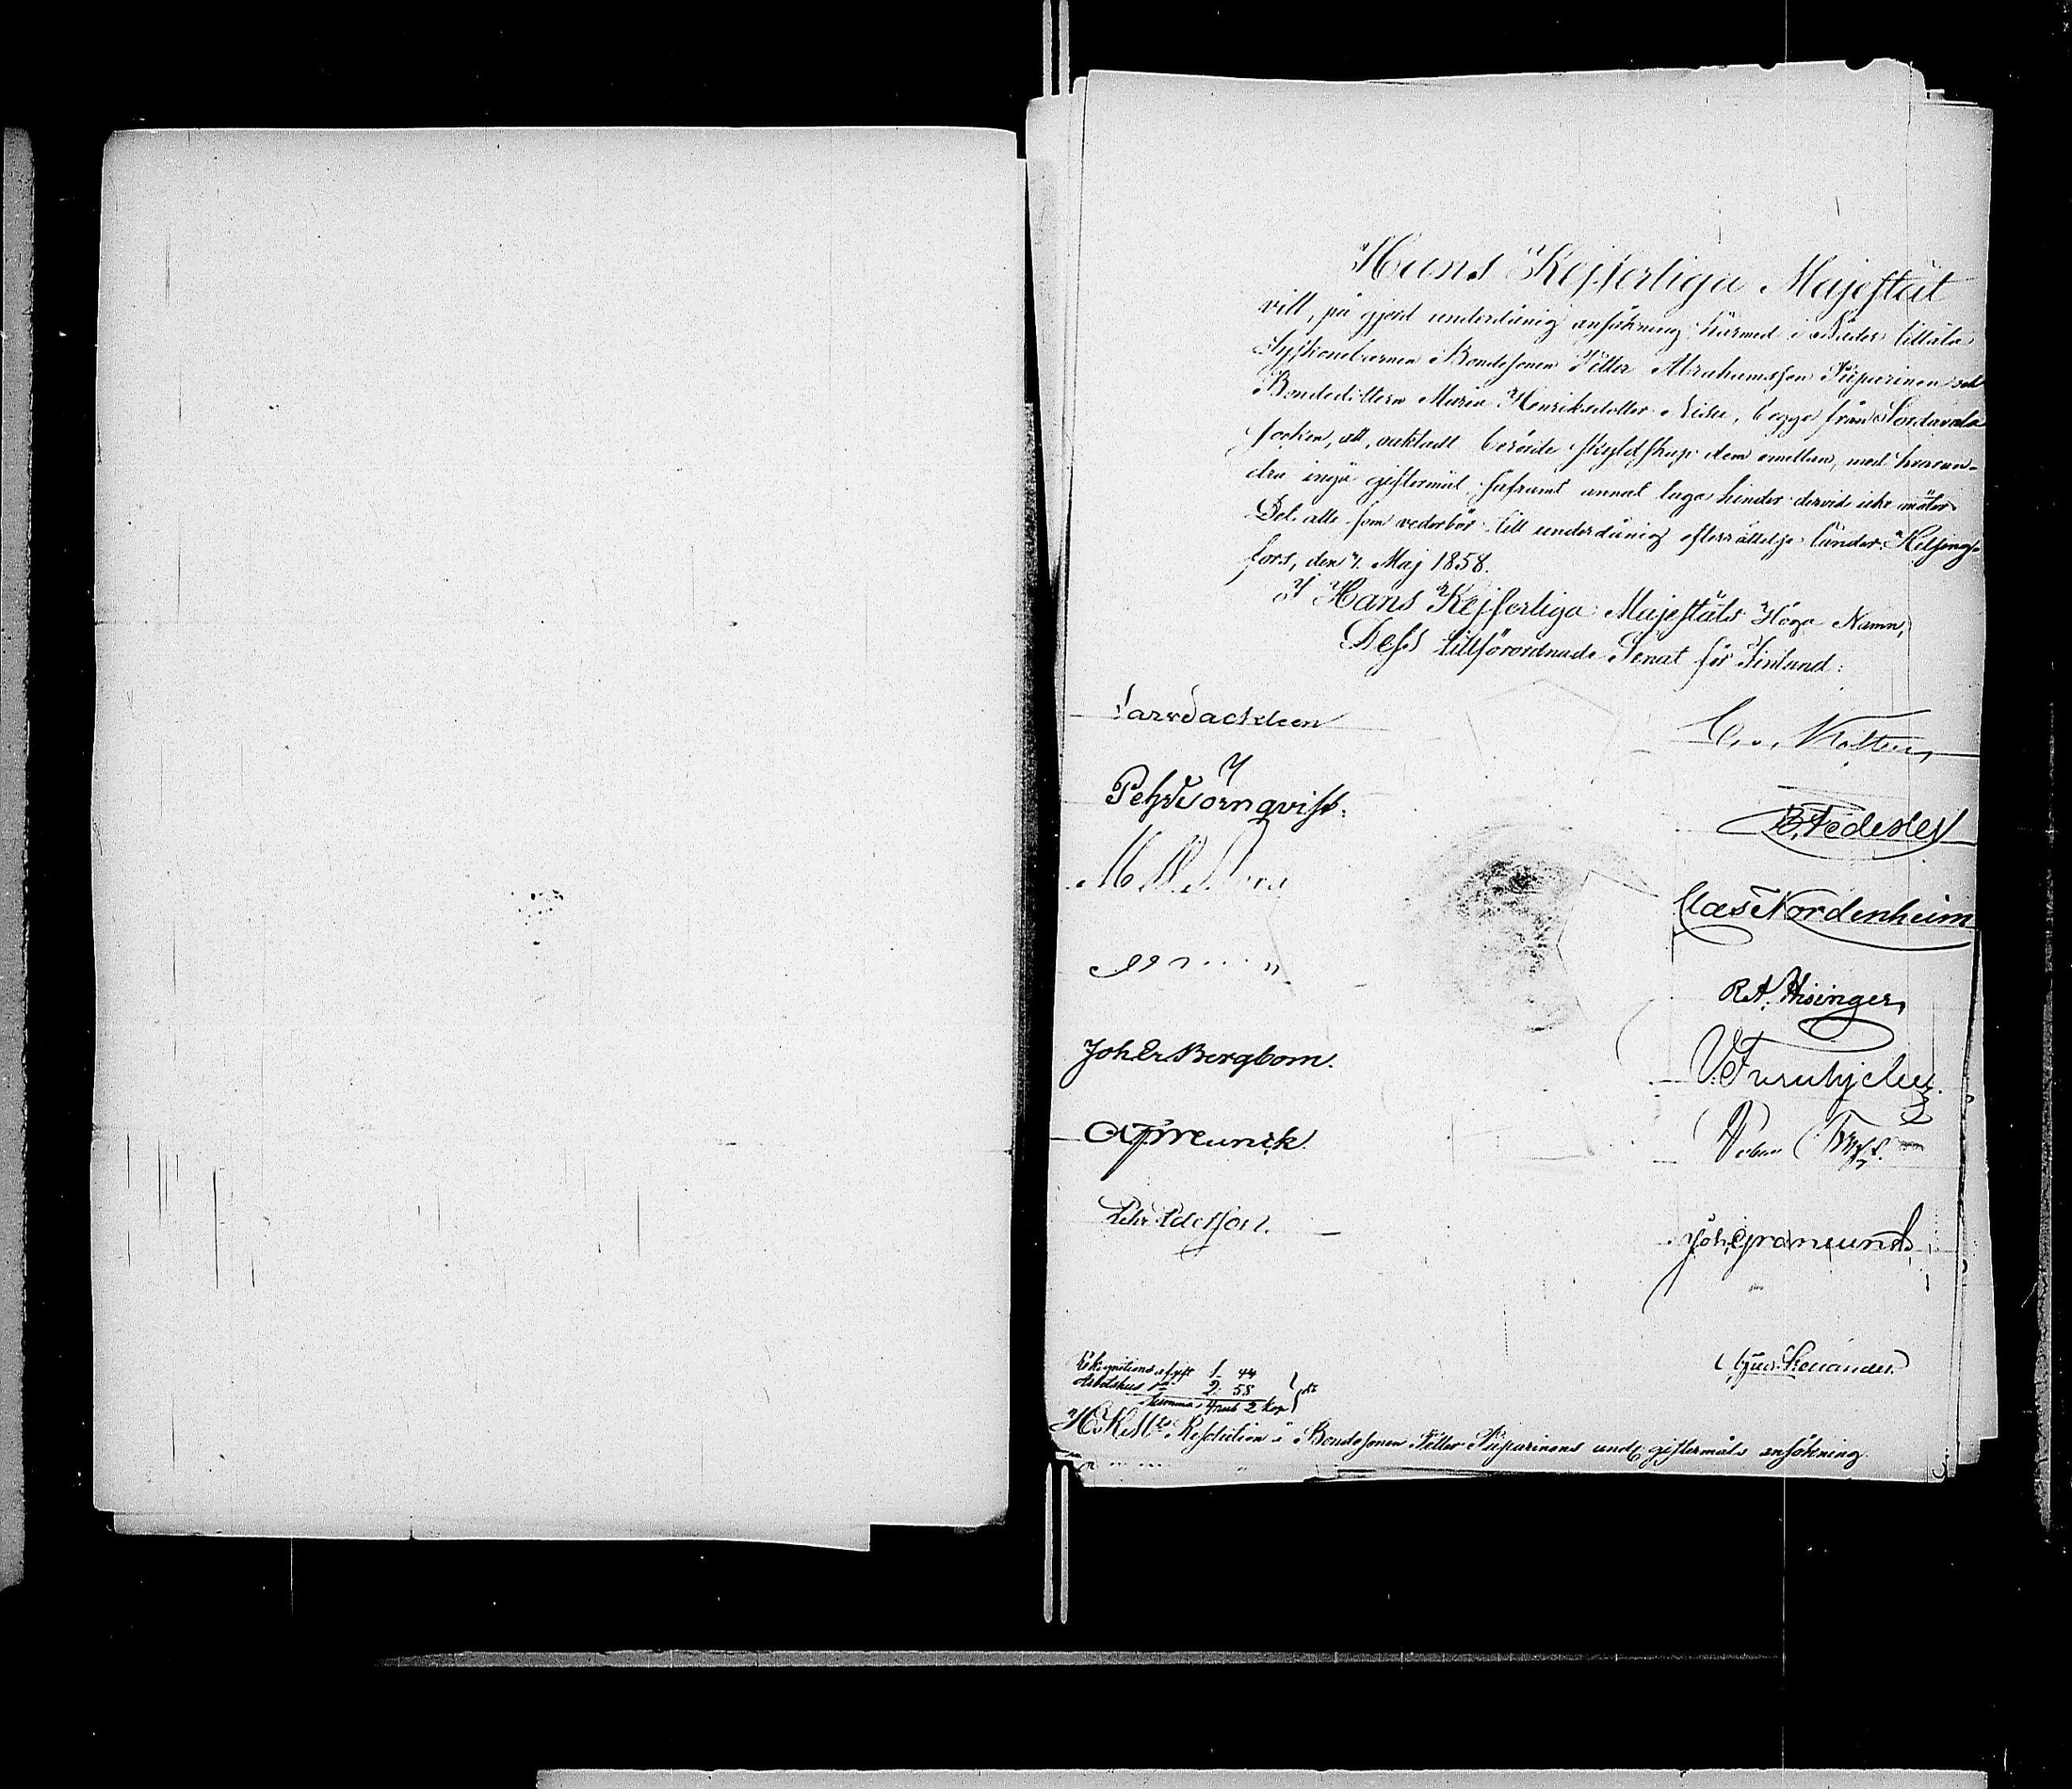 Hans Kejserliga Majestät
vill, på gjord underdånig ansökning härmed i Nåder tillåta
Syskonebarnen Bondesonen Petter Abrahamsson Piiparinen och
Bondedottern Maria Henriksdotter begge från Sordavala
socken, att, oaktadt berörde skyldskap dem emellan, med hvaran-
dra ingå giftermål, såframt annat laga hinder dervid icke möter.
Det alle som vederbör till underdånig efterrättelse länder. Helsing-
fors, den 7. Maj 1858.
I Hans Kejserliga Majestäts Höga Namn,
Dess tillförordnade Senat för Finland:
Lars Sackleen
C. v. Kothen
Pehr Törnqvist.
B. Federley
Claes Nordenheim
R. A. Hisinger
Joh Er Bergbom.
V. Furuhjelm.
Af Brunér
Joh. Granlund
Pehr Edelsson.
Gust. Renander.
Rekognitions afgift 1 44
Arbetshus do 2. 58
Summa 4 rub 2 kop
H. K. Mts Resolution å Bondesonen Petter Piiparinens und. giftermåls ansökning.